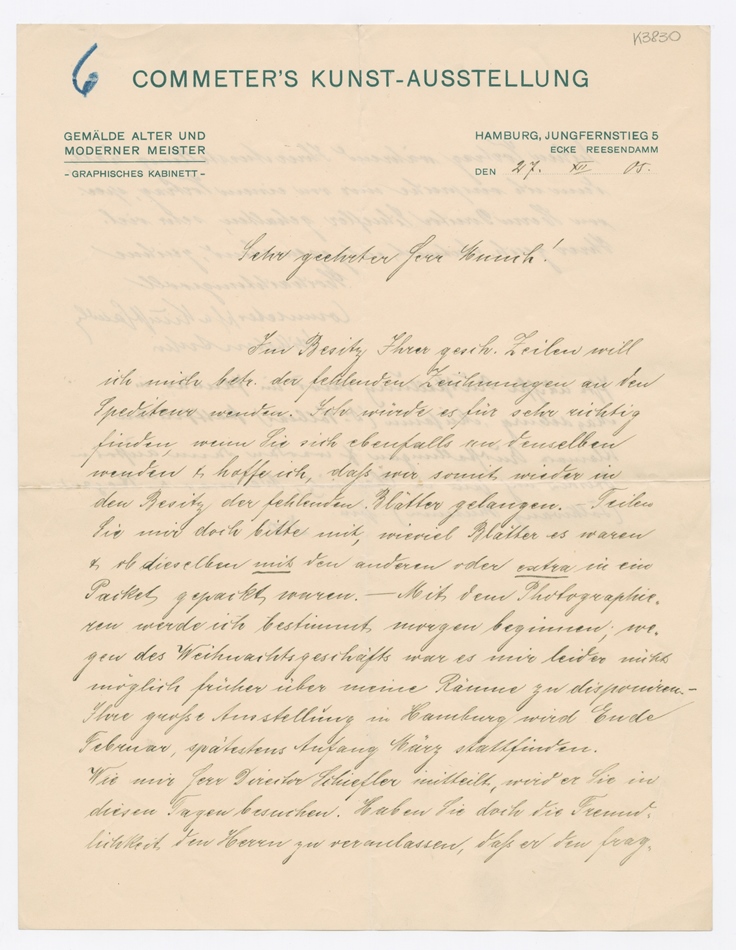 K3830
6
COMMETER'S KUNST-AUSSTELLUNG
GEMÄLDE ALTER UND
MODERNER MEISTER
- GRAPHISCHES KABINETT -
HAMBURG, JUNGFERNSTIEG 5
ECKE REESENDAMM
DEN 27. XII 05.
Sehr geehrter Herr Munch!
Im Besitz Ihrer gesch. Zeilen will
ich mich betr. der fehlenden Zeichnungen an den
Spediteur wenden. Ich würde es für sehr richtig
finden, wenn Sie sich ebenfalls an denselben
wenden & hoffe ich, daß wir somit wieder in
den Besitz der fehlenden Blätter gelangen. Teilen
Sie mir doch bitte mit, wieviel Blätter es waren
& ob dieselben mit den anderen oder extra in ein
Packet gepackt waren. — Mit dem Photographie-
ren werde ich bestimmt morgen beginnen; we-
gen des Weihnachtsgeschäfts war es mir leider nicht
möglich früher über meine Räume zu disponiren. -
Ihre große Ausstellung in Hamburg wird Ende
Februar, spätestens Anfang März stattfinden.
Wie mir Herr Director Schiefler mitteilt, wird er Sie in
diesen Tagen besuchen. Haben Sie doch die Freund-
lichkeit den Herrn zu veranlassen, daß er den frag-